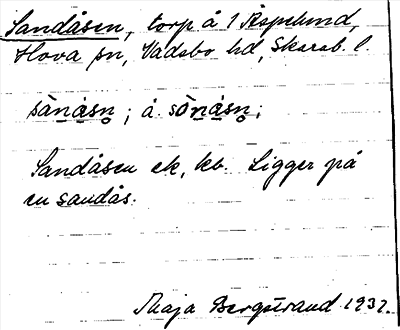 Sandåsen, torp å 1 Äspelund,
Hova sn, Vadsbo hd, Skarab. l.
sànåsn; å. sònåsn;
Sandåsen ek, kb. Ligger på
en sandås.
Maja Bergstrand 1932.